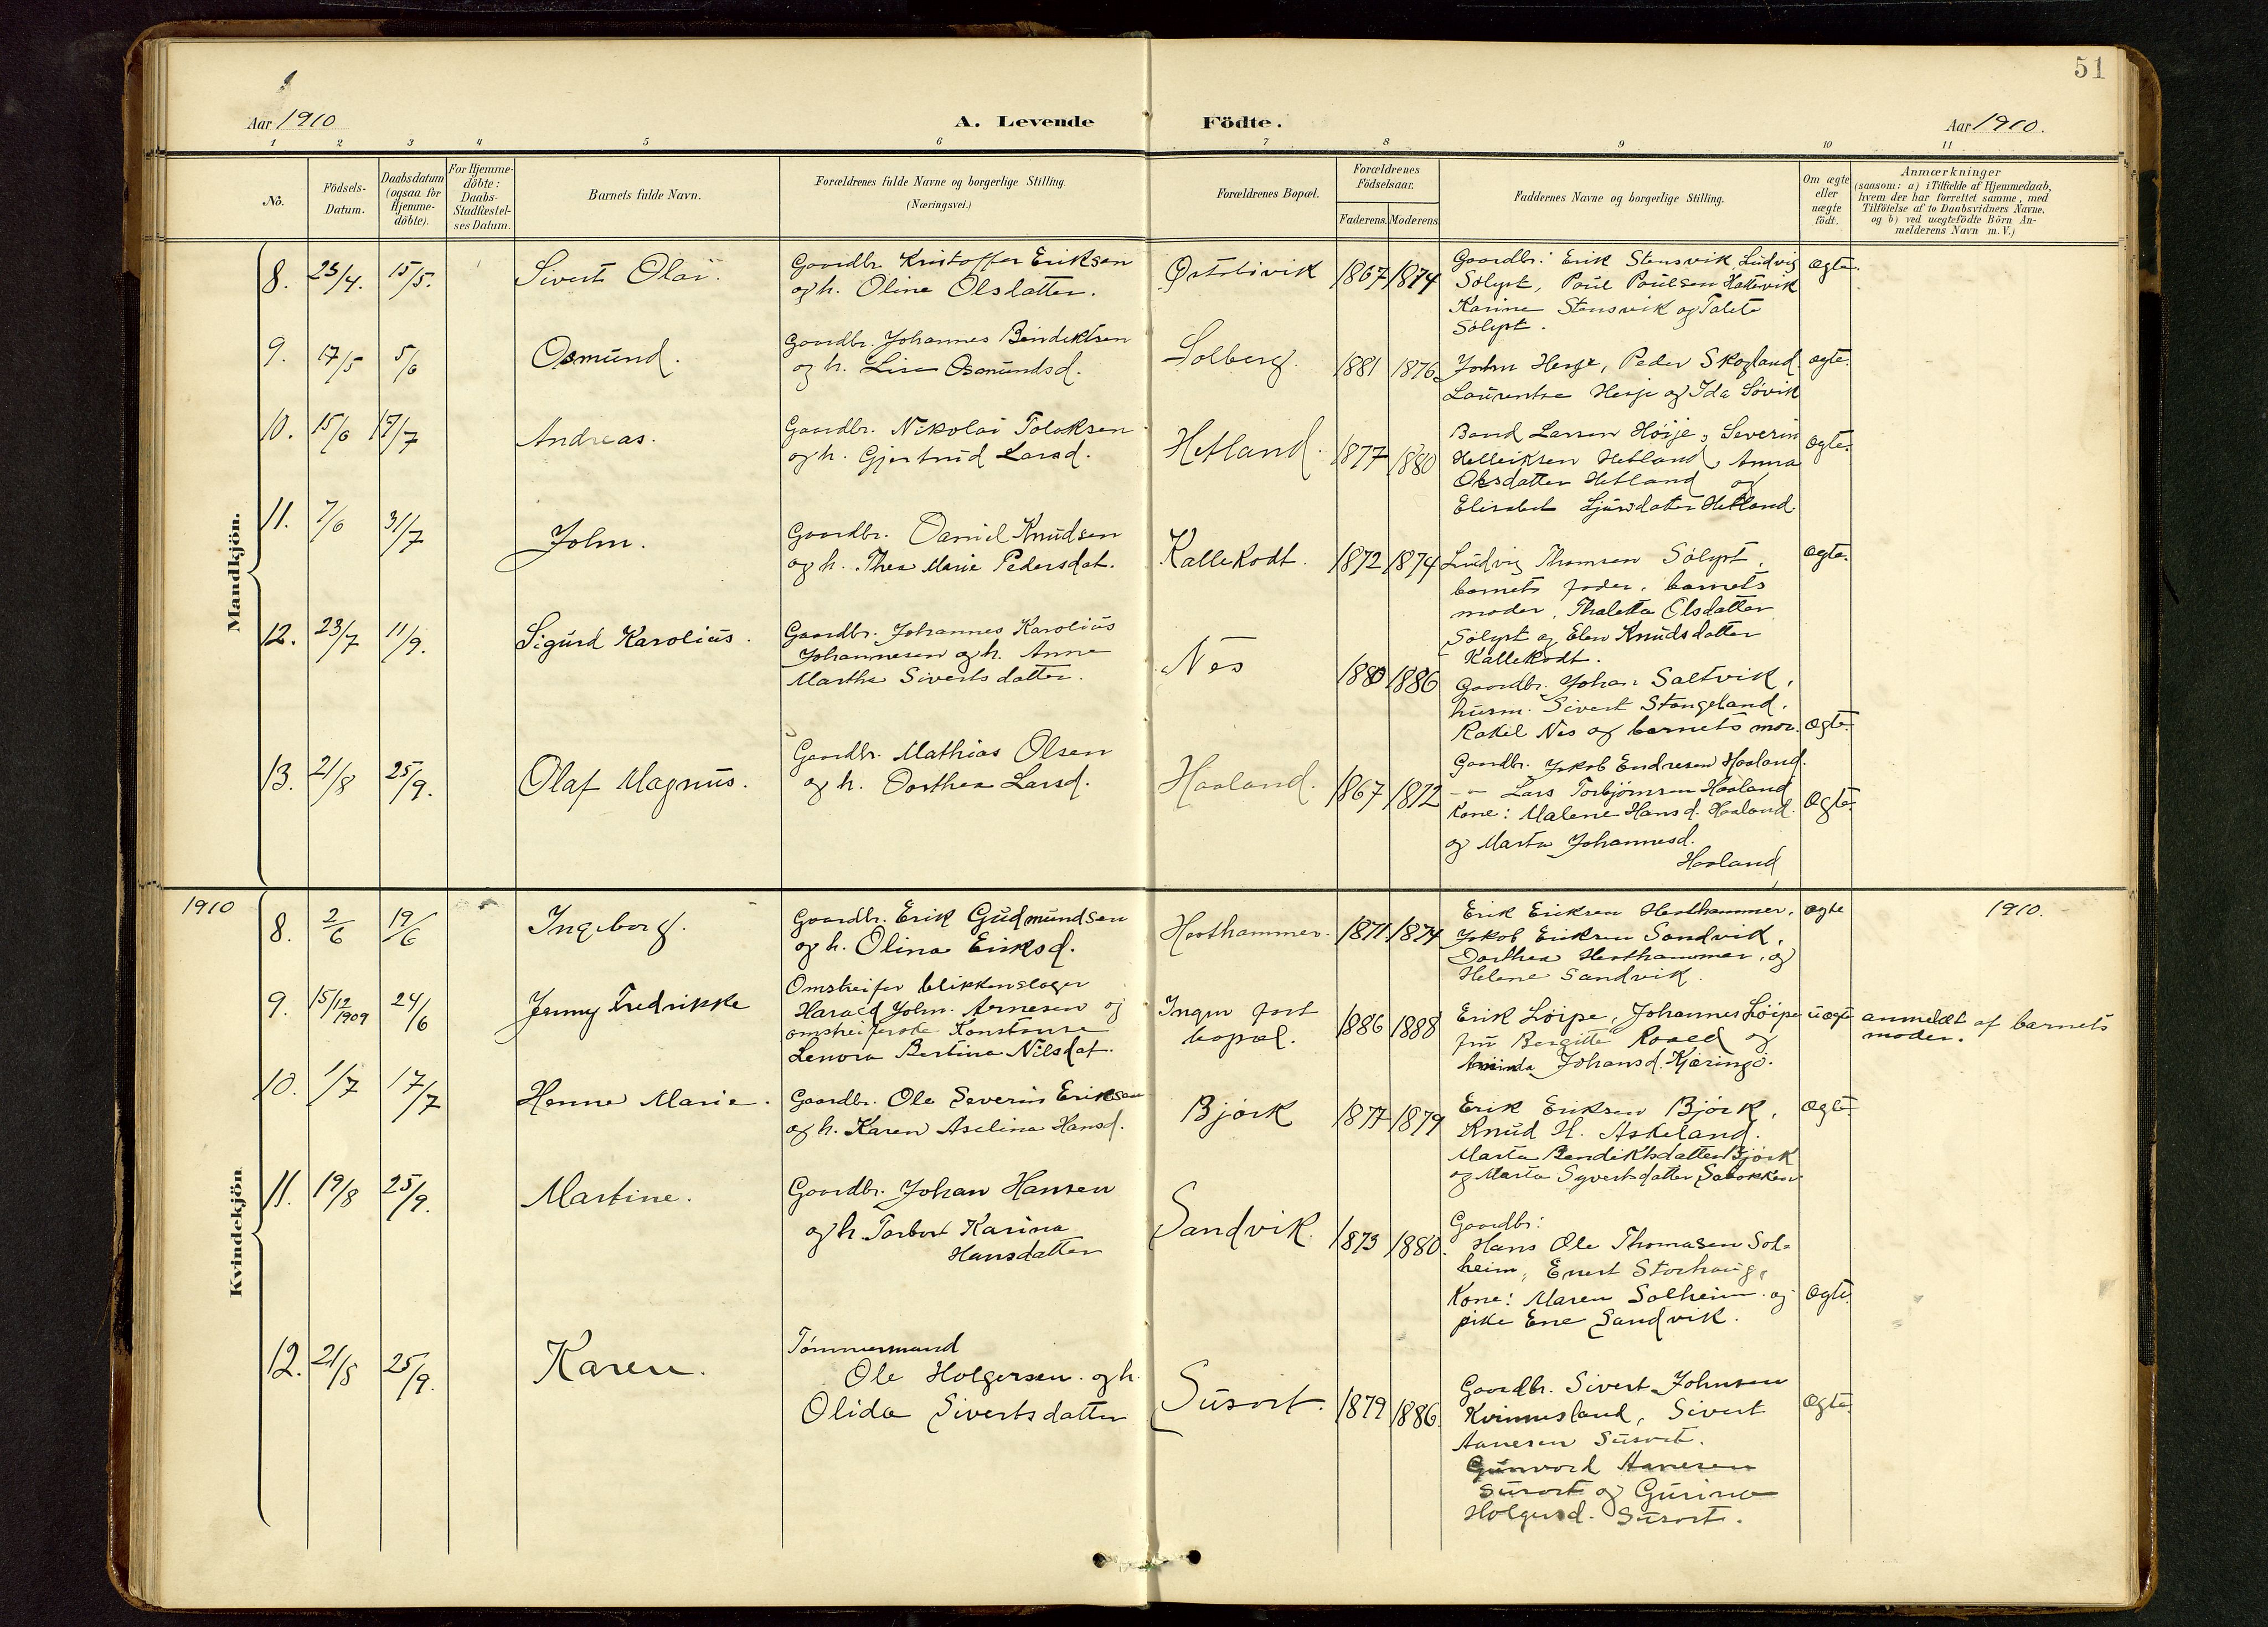 51
Aar 1910
A. Levende Födte.
Aar 1910.
1 2 3 4 5 6 7 8 9 10 11
No.
Födsels-Datum.
Daabsdatum (ogsaa for Hjemme-döbte).
For Hjemme-döbte: Daabs-Stadfæstel-ses Datum.
Barnets fulde Navn.
Forældrenes fulde Navne og borgerlige Stilling.
(Næringsvei.)
Forældrenes Bopæl.
Forældrenes Födselsaar.
Faderens. Moderens.
Faddernes Navne og borgerlige Stilling.
Om ægte eller uægte födt.
Anmærkninger
(saasom: a) i Tilfælde af Hjemmedaab,
hvem der har forrettet samme, med
Tilföielse af to Daabsvidners Navne,
og b) ved uægtefödte Börn An-
melderens Navn m. V.)
Mandkjön.
8. 23/4. 15/5. Sivert Olai.
Gaardbr. Kristoffer Eriksen
og h. Oline Olsdatter.
1867 1874
Gaardbr: Erik Stensvik, Ludvig
Sølyst, Paul Paulsen Hattevik
Karine Stensvik og Talete
Sølyst.
Ægte.
9. 17/5 5/6 Osmund.
Gaardbr. Johannes Bendiktsen
og h. Lise Osmundsd.
Solberg. 1881 1876
John Hesje, Peder Skogland.
Laurentse Hesje og Ida Søvik
Ægte.
10. 15/6 17/7 Andreas.
Gaardbr. Nikolai Tolaksen
og h. Gjertrud Larsd.
Hetland. 1877 1880
Baard Larsen Høije, Severin
Helleiksen Hetland, Anna
Olsdatter Hetland og
Elisabet Hetland
Ægte.
11. 7/6 31/7 John.
Gaardbr. Daniel Knudsen
og h. Thea Marie Pedersdat.
Kallekodt. 1872 1874
Ludvig Thomsen Sølyst,
barnets fader, barnets
moder, Thaletta Olsdatter
Sølyst og Elen Knudsdatter
Kallekodt.
Ægte.
12. 23/7 11/9. Sigurd Karolius.
Gaardbr. Johannes Karolius
Johannesen og h. Anne
Martha Sivertsdatter.
Nes 1880 1886
Gaardbr. Johan Saltvik,
husm. Sivert Stangeland.
Rakel Nes og barnets mor.
Ægte.
13. 21/8 25/9. Olaf Magnus.
Gaardbr. Mathias Olsen
og h. Dorthea Larsd.
Haaland. 1867 1872
Gaardbr. Jakob Endresen Haaland.
-"- Lars Torbjørnsen Haaland
Kone: Malene Hansd. Haaland.
og Marta Johannesd.
Haaland
Ægte.
1910
1910.
Kvindekjön
8. 2/6 19/6 Ingeborg.
Gaardbr. Erik Gudmundsen
og h. Olina Eriksd.
Hesthammer. 1871 1874
Erik Eriksen Hesthammer.
Jakob Eriksen Sandvik,
Dorthea Hesthammer, og
Helene Sandvik.
Ægte
9. 15/12 1909 24/6 Jenny Fredrikke
Omstreifer blikkenslager
Harald John. Arnesen og
omstreiferske Konstanse
Lenora Bertina Nilsdat.
Ingen fast
bopæl.
1886 1888
Erik Løipe, Johannes Løipe
fru Bergitte Roald og
Johansd. Kjæringø.
uægte
anmeldt af barnets
moder.
10. 1/7 17/7 Hanna Marie.
Gaardbr. Ole Severin Eriksen
og h. Karen Aselina Hansd.
Bjørk 1877 1879
Erik Eriksen Bjørk,
Knud H. Askeland.
Marta Bendiktsdatter Bjørk
og Marta Syvertsdatter
Ægte
11. 19/8 25/9. Martine.
Gaardbr. Johan Hansen
og h. Torbor Karina
Hansdatter
Sandvik. 1873 1880.
Gaardbr:
Hans Ole Thomasen Sol=
heim, Enert Storhaug,
Kone: Maren Solheim og
pike Ene Sandvik.
Ægte.
12. 21/8 25/9. Karen.
Tømmermand
Ole Holgersen og h.
Olida Sivertsdatter
Susort. 1879 1886.
Gaardbr. Sivert Johnsen
Kvinnesland, Sivert
Aanesen Susort.
Gunvord Aanesen
Susort og Gurina
Holgersd. Susort.
Ægte.